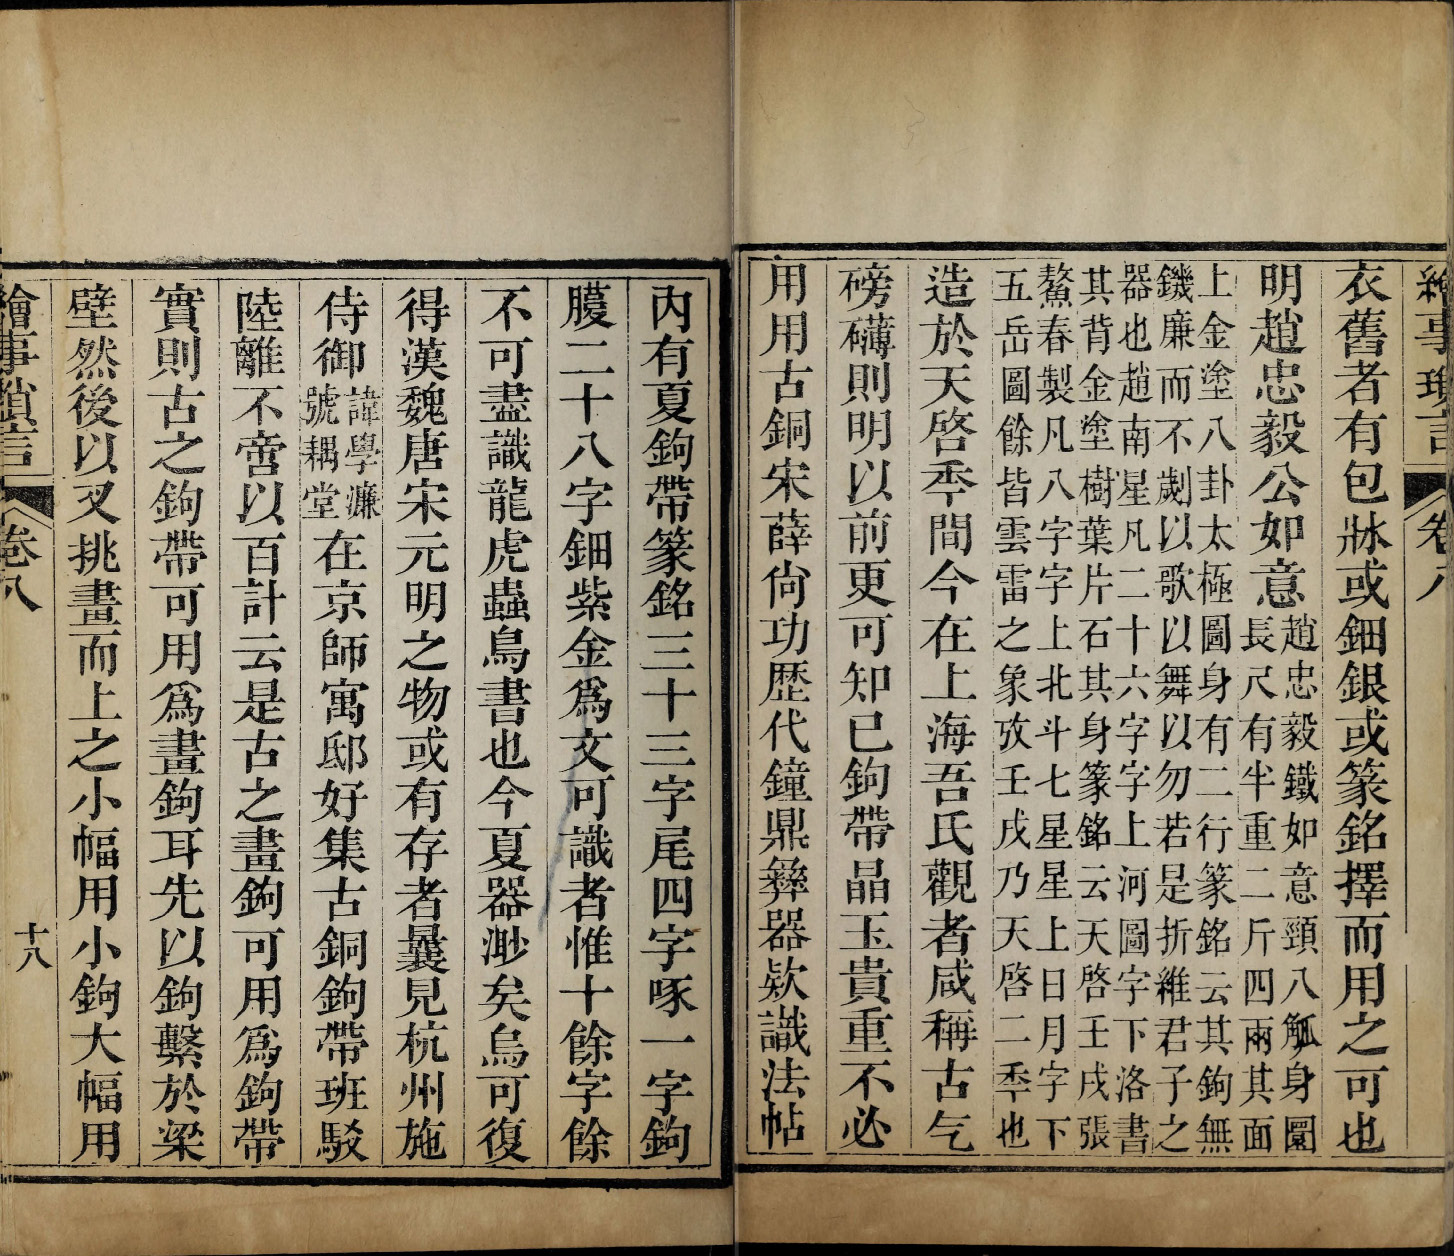 繪事瑣言
卷八
衣舊者有包牀或鈿銀或篆銘擇而用之可也
明趙忠毅公如意
趙忠毅鐵如意頸八觚身圜
長尺有半重二斤四兩其面
上金塗八卦太極圖身有二行篆銘云其鉤無
鐖廉而不劌以歌以舞以勿若是折維君子之
器也趙南星凡二十六字字上河圖字下洛書
其背金塗樹葉片石其身篆銘云天啓壬戌張
鰲春製凡八字字上北斗七星星上日月字下
五岳圖餘皆雲雷之象攷壬戌乃天啓二秊也
造於天啓秊間今在上海吾氏觀者咸稱古气
磅礴則明以前更可知已鉤帶晶玉貴重不必
用用古銅宋薛尙功歷代鐘鼎彝器欵識法帖
內有夏鉤帶篆銘三十三字尾四字啄一字鉤
腹二十八字鈿紫金爲文可識者惟十餘字餘
不可盡識龍虎蟲鳥書也今夏器渺矣烏可復
得漢魏唐宋元明之物或有存者曩見杭州施
侍御
諱學濂
號耦堂
在京師寓邸好集古銅鉤帶班駁
陸離不啻以百計云是古之畫鉤可用爲鉤帶
實則古之鉤帶可用爲畫鉤耳先以鉤繫於梁
壁然後以叉挑畫而上之小幅用小鉤大幅用
繪事瑣言
卷八
十八